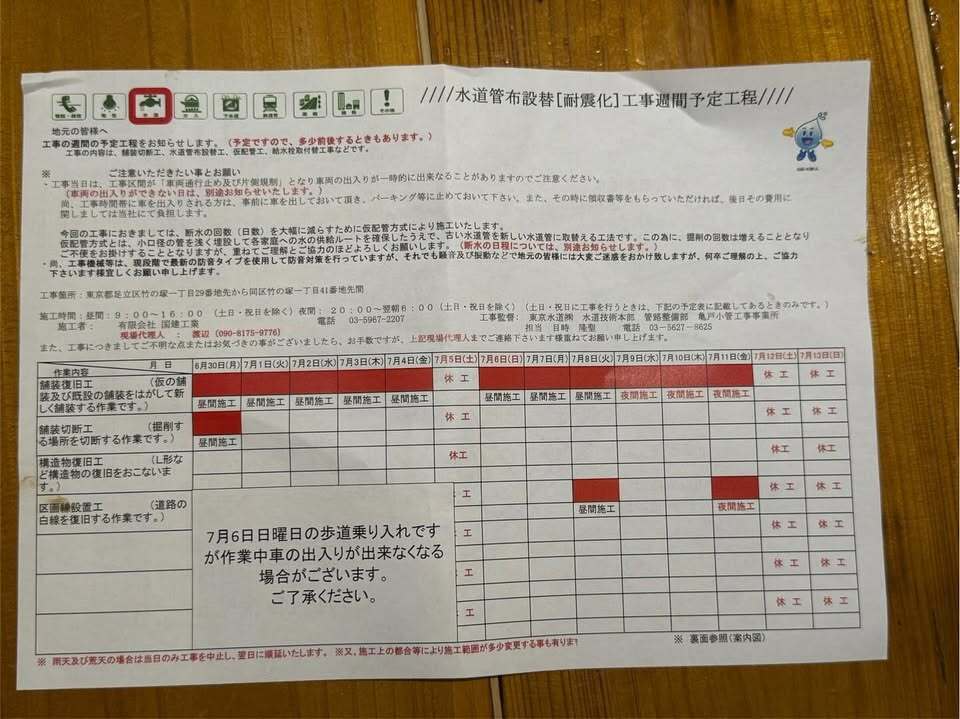 ////水道管布設替[耐震化]工事週間予定工程////
水道
下水道
その他
地元の皆様へ
工事の週間の予定工程をお知らせします。(予定ですので、多少前後するときもあります。)
工事の内容は、舗装切断工、水道管布設替工、仮配管工、給水栓取付替工事などです。
※ ご注意いただきたい事とお願い
・工事当日は、工事区間が「車両通行止め及び片側規制」となり車両の出入りが一時的に出来なくなることがありますのでご注意ください。
(車両の出入りができない日は、別途お知らせいたします。)
尚、工事時間帯に車を出入りされる方は、事前に車を出しておいて頂き、パーキング等に止めておいて下さい。また、その時に領収書等をもらっていただければ、後日その費用に
関しましては当社にて負担します。
今回の工事におきましては、断水の回数(日数)を大幅に減らすために仮配管方式により施工いたします。
仮配管方式とは、小口径の管を浅く埋設して各家庭への水の供給ルートを確保したうえで、古い水道管を新しい水道管に取り替える工法です。この為に、掘削の回数は増えることとなり
ご不便をお掛けすることとなりますが、重ねてご理解とご協力のほどよろしくお願いします。(断水の日程については、別途お知らせします。)
・尚、工事機械等は、現段階で最新の防音タイプを使用して防音対策を行っていますが、それでも騒音及び振動などで地元の皆様には大変ご迷惑をおかけ致しますが、何卒ご理解の上、ご協力
下さいます様宜しくお願い申し上げます。
工事箇所:東京都足立区竹の塚一丁目29番地先から同区竹の塚一丁目41番地先間
施工時間:昼間:9:00~16:00 (土日・祝日を除く) 夜間:20:00~翌朝6:00 (土日・祝日を除く) (土日・祝日に工事を行うときは、下記の予定表に記載してあるときのみです。)
施工者: 有限会社 国建工業 電話 03-5967-2207 工事監督: 東京水道㈱ 水道技術本部 管路整備部 亀戸小管工事事業所
現場代理人 : 渡辺(090-8175-9776) 担当 目時 隆聖 電話 03-5627-8625
また、工事につきましてご不明な点またはお気づきの事がございましたら、お手数ですが、上記現場代理人までご連絡下さいます様重ねてお願い申し上げます。
月 日 6月30日(月) 7月1日(火) 7月2日(水) 7月3日(木) 7月4日(金) 7月5日(土) 7月6日(日) 7月7日(月) 7月8日(火) 7月9日(水) 7月10日(木) 7月11日(金) 7月12日(土) 7月13日(日)
作業内容
舗装復旧工 (仮の舗 休 工 休 工 休 工
装及び既設の舗装をはがして新
しく舗装する作業です。) 昼間施工 昼間施工 昼間施工 昼間施工 昼間施工 昼間施工 昼間施工 昼間施工 夜間施工 夜間施工 夜間施工
舗装切断工 (掘削す 休 工 休 工 休 工
る場所を切断する作業です。) 昼間施工
構造物復旧工 (L形な 休工 休 工 休 工
ど構造物の復旧をおこないま
す。)
区画線設置工 (道路の 工 休 工 休 工
白線を復旧する作業です。) 昼間施工 夜間施工
工 休 工 休 工
工 休 工 休 工
工 休 工 休 工
7月6日日曜日の歩道乗り入れです
が作業中車の出入りが出来なくなる
場合がございます。
ご了承ください。
※ 裏面参照(案内図)
※ 雨天及び荒天の場合は当日のみ工事を中止し、翌日に順延いたします。 ※又、施工上の都合等により施工範囲が多少変更する事も有りま